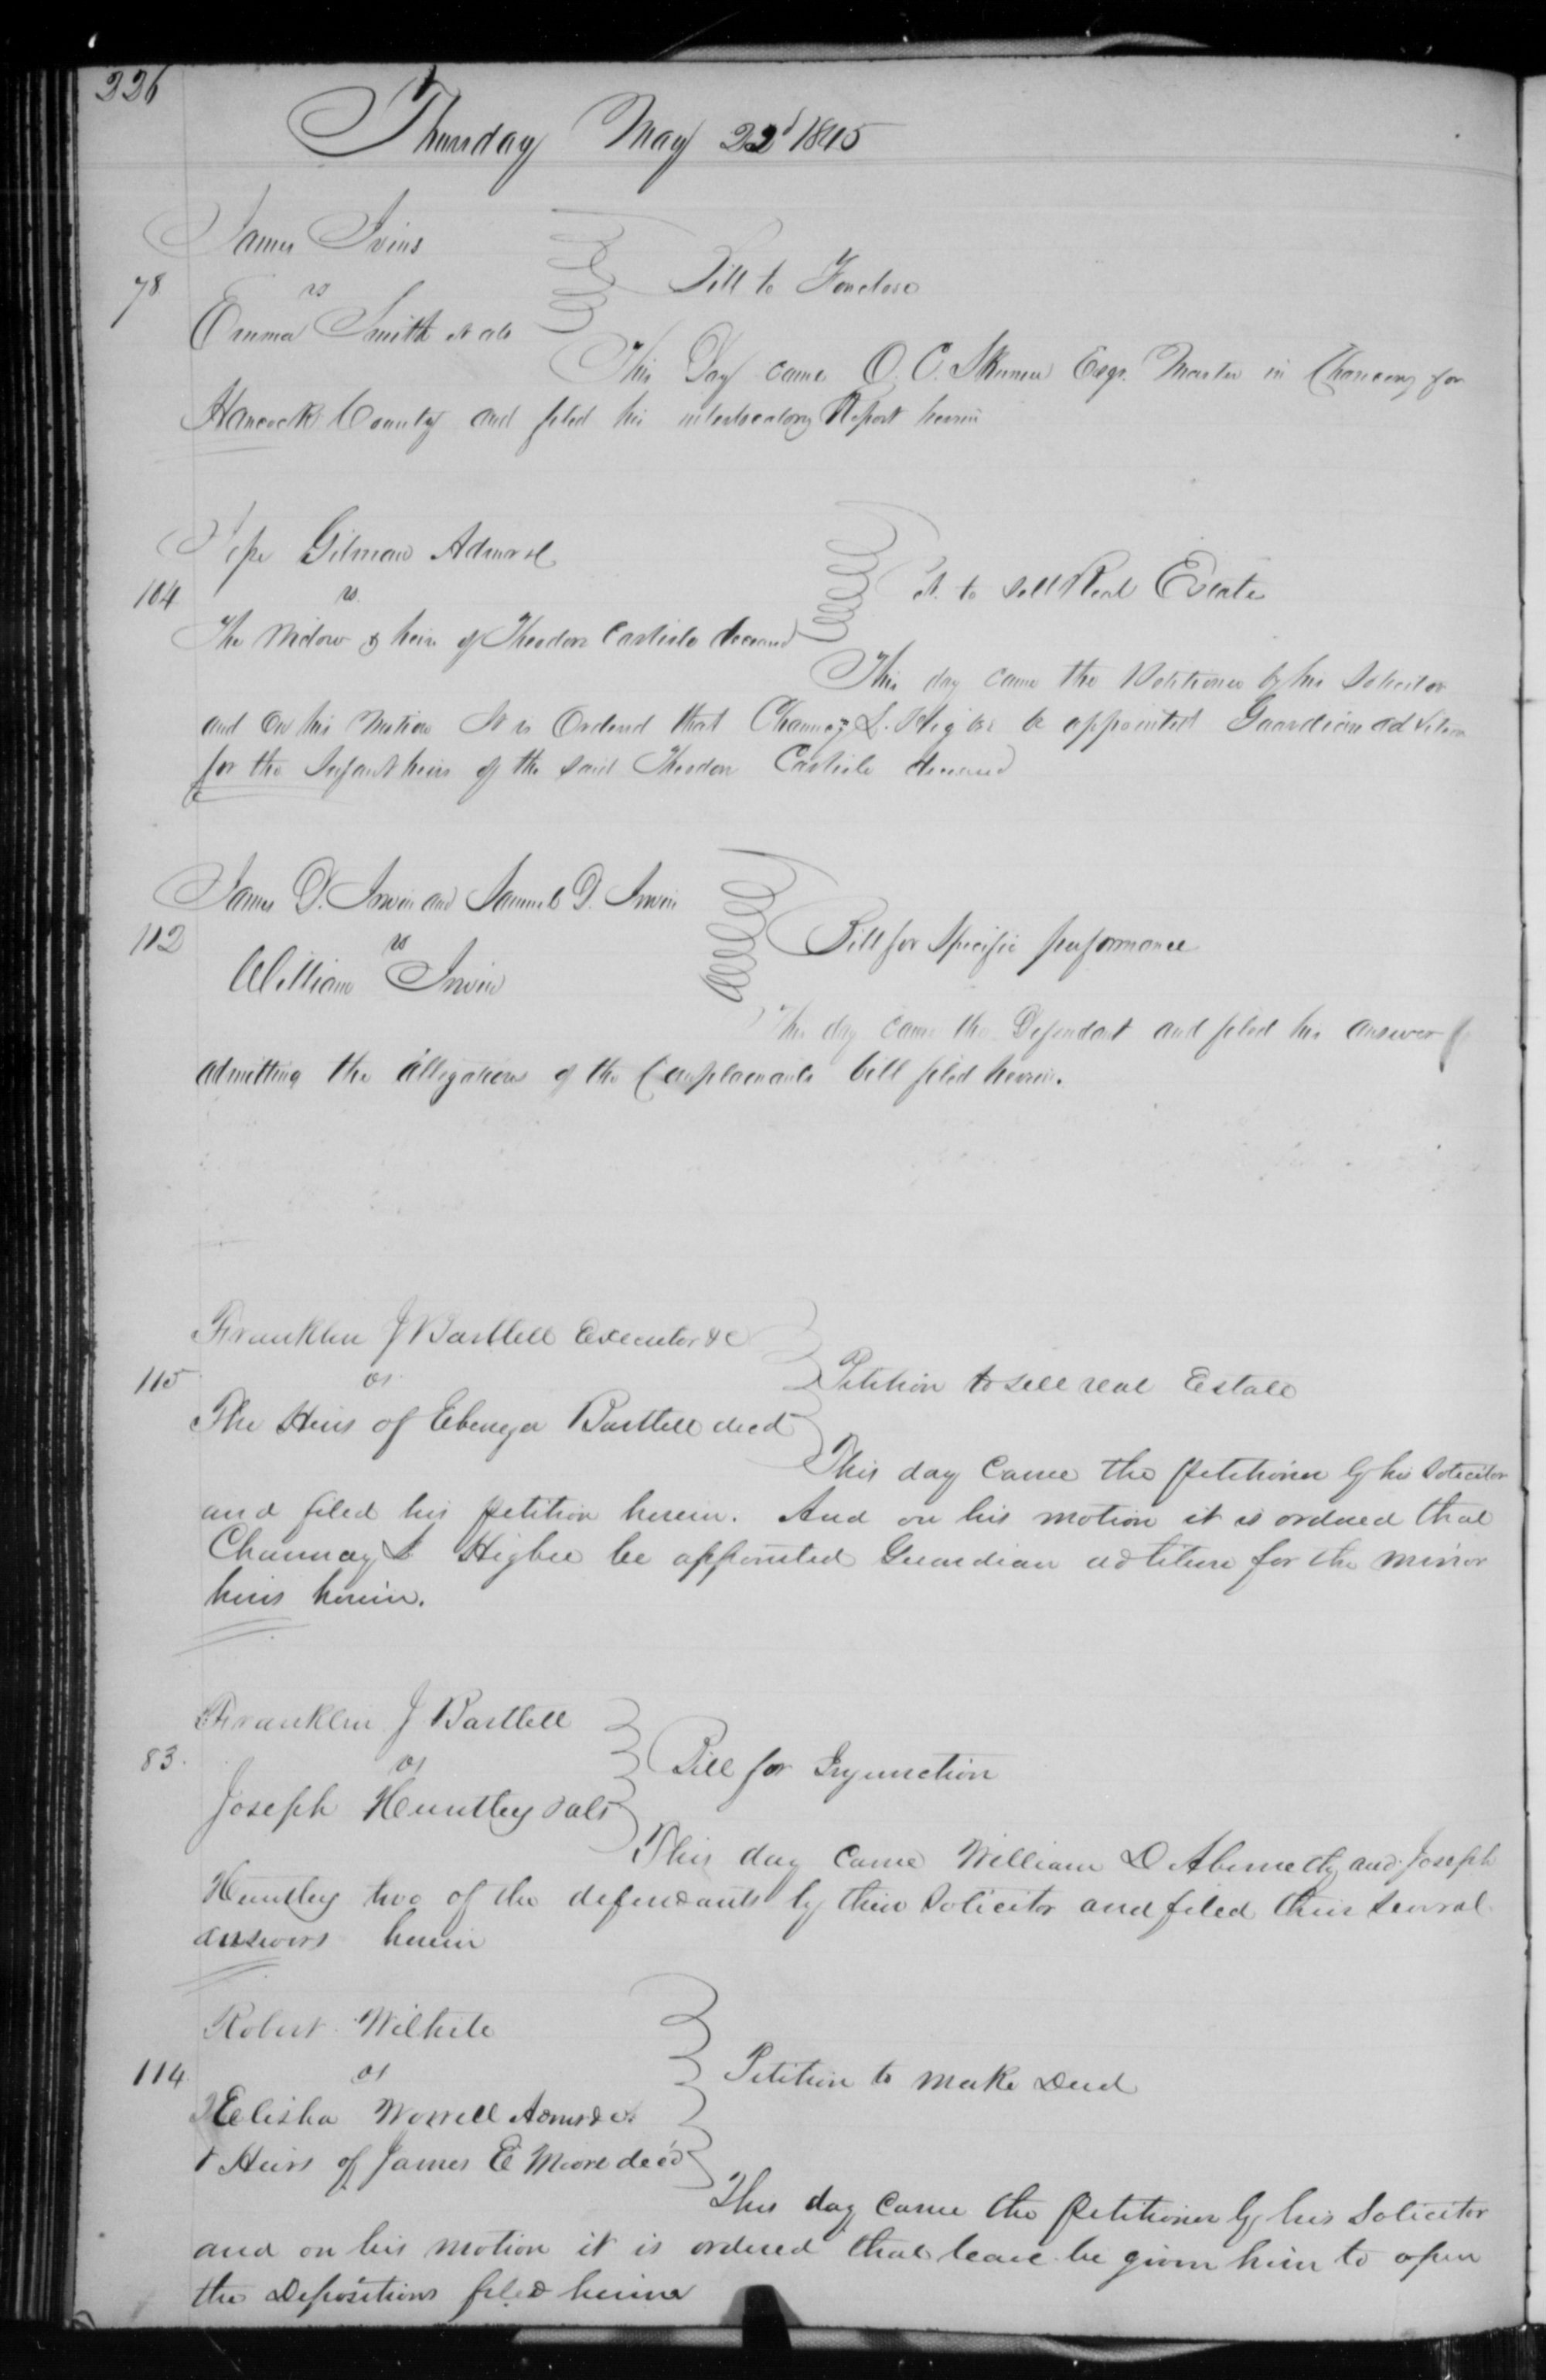 226
Thursday May 22d 1845
James Ivins
78
vs
Bill to Foreclose
Emma Smith et als
This Day came O. C. Skinner Esqr. Master in Chancery for
Hancock County and filed his interlocutory Report herein
Gilman Admr &c
104
vs.
Pet. to sell Real Estate
The Widow & heirs of Theodore Carlisle deceased
This day came the Petitioner by his Solicitor
and on his Motion It is Ordered that Chauncy L. Higbee be appointed Guardian ad Litem
for the Infant heirs of the said Theodore Carlisle deceased
James D. Irwin and Samuel D. Irwin
112
vs
Bill for Specific performance
William Irwin
This day came the Defendant and filed his answer
admitting the allegations of the Complainants bill filed herein.
Franklin J Bartlett Executor &c
115
vs
Petition to sell real Estate
The Heirs of Ebenezer Bartlett decd
This day came the petitioner by his Solicitor
and filed his petition herein. And on his motion it is ordered that
Chauncey L Higbee be appointed Guardian ad litem for the minor
heirs herein.
Franklin J Bartlett
83.
vs
Bill for Injunction
Joseph Huntley & als
This day came William D Abernethy and Joseph
Huntley two of the defendants by their Solicitor and filed their several
answers herein
Robert Wilhite
114.
vs
Petition to make Deed
Elisha Worrell Admr &c
& Heirs of James E Moore decd
This day came the Petitioner by his Solicitor
and on his motion it is ordered that leave be given him to open
the Depositions filed herein